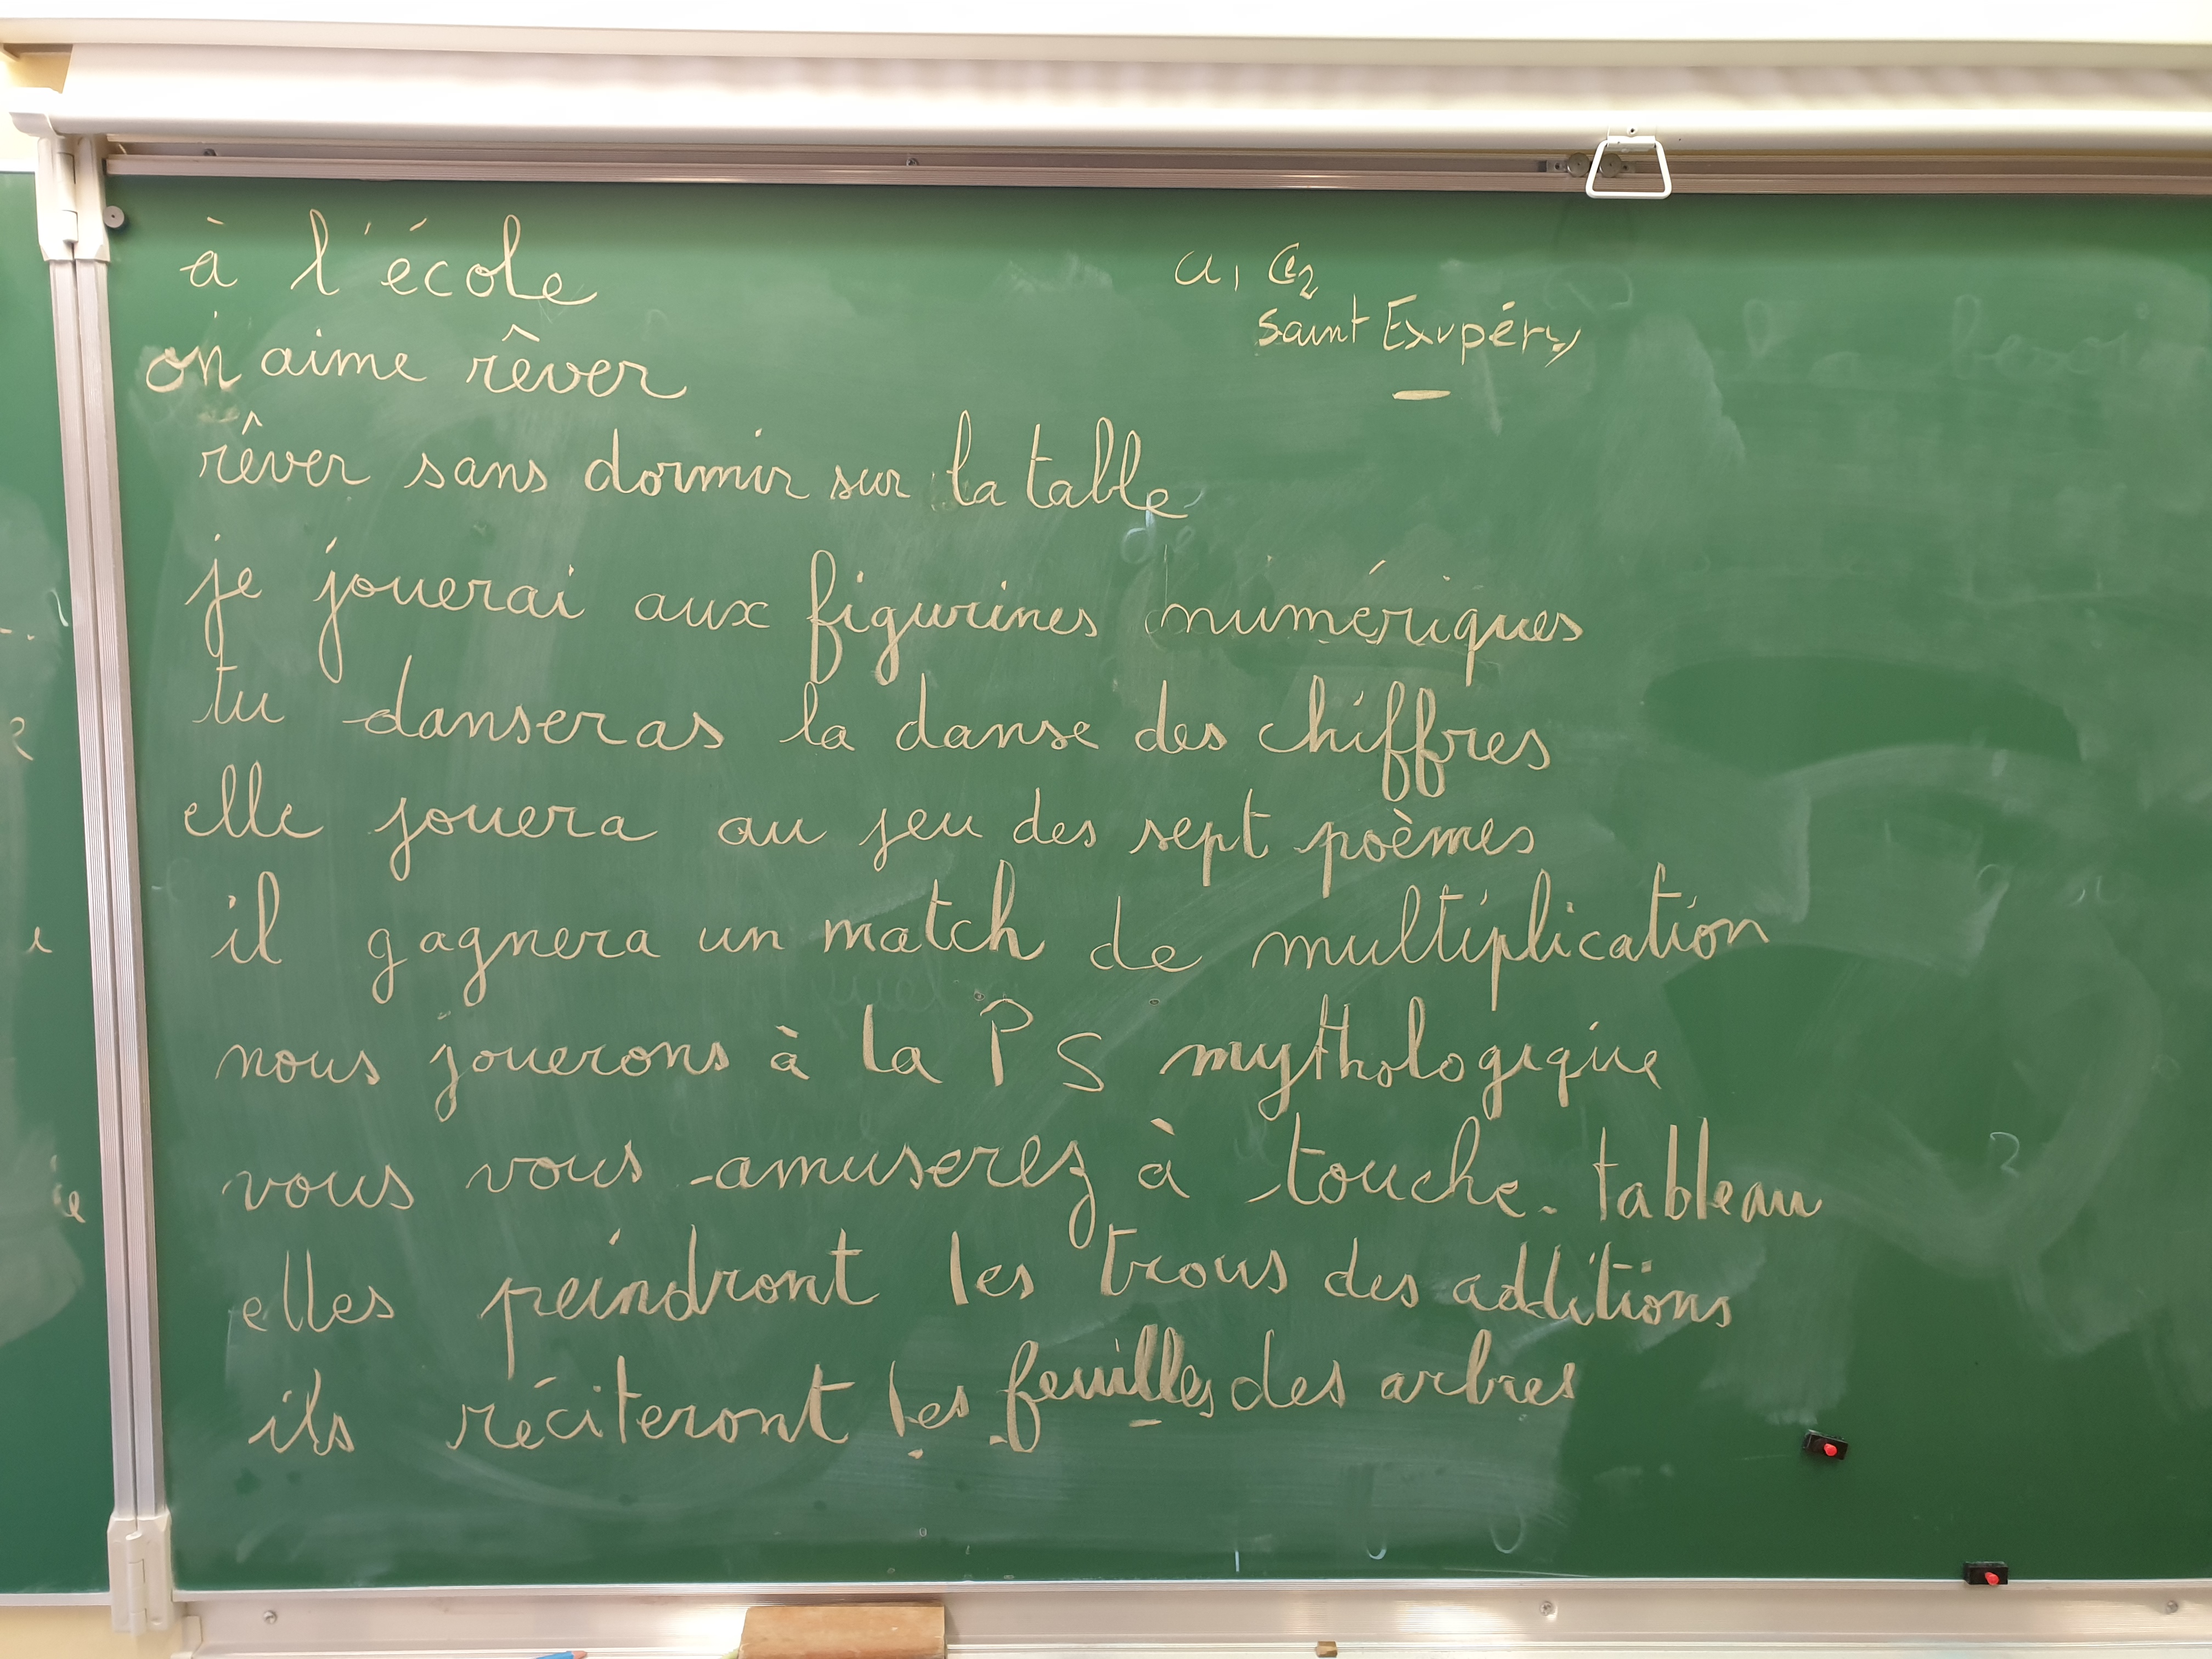 à l'école
saint Exupéry
on aime rêver
rêver sans dormir sur la table
je jouerai aux figurines numériques
tu danseras la danse des chiffres
elle jouera au jeu des sept poèmes
il gagnera un match de multiplication
nous jouerons à la PS mythologique
vous vous amuserez à touche-tableau
elles peindront les trous des additions
ils réciteront les feuilles des arbres